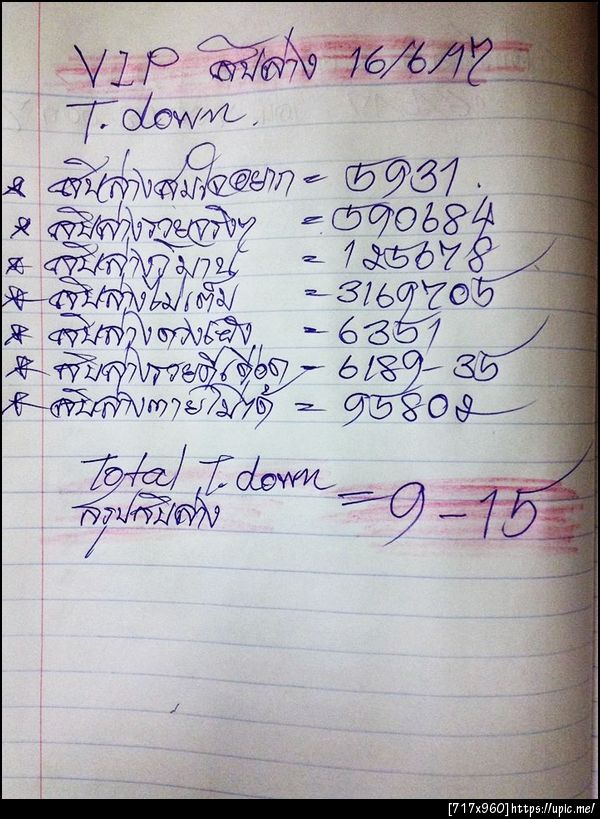 VIP สิบล่าง 16/6/17
T. down.
* สิบล่างสมใจอยาก = 5931.
* สิบล่างรวยจริงๆ = 590684
* สิบล่างวิมาน = 125678
* สิบล่างไม่เต็ม = 3169705
* สิบล่าง = 6351
* สิบล่างรวย = 6189-35
* สิบล่างตายไม่ได้ = 95802
Total T. down
สรุปสิบล่าง = 9-15
[717x960]https://upic.me/